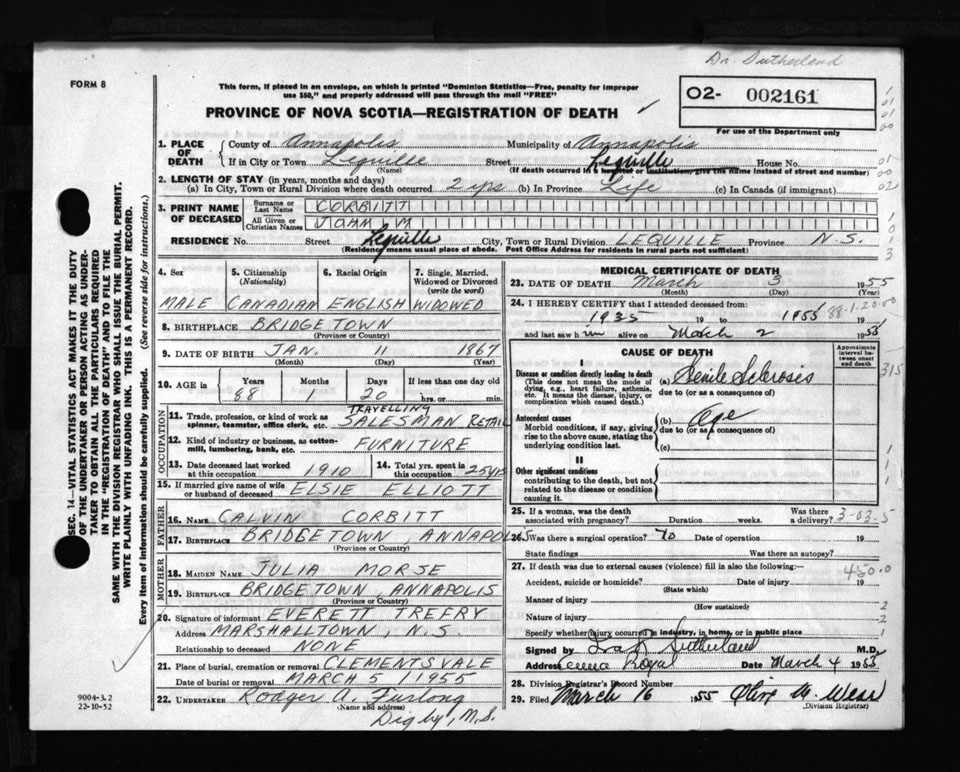 Dr. Sutherland
FORM 8
This form, if placed in an envelope, on which is printed "Dominion Statistics—Free, penalty for improper
use $50," and properly addressed will pass through the mail "FREE"
PROVINCE OF NOVA SCOTIA—REGISTRATION OF DEATH
02- 002161
For use of the Department only
1. PLACE OF DEATH
County of Annapolis Municipality of Annapolis
If in City or Town Lequille Street Lequille House No.
(Name) (If death occurred in a hospital or institution, give the name instead of street and number)
2. LENGTH OF STAY (in years, months and days)
(a) In City, Town or Rural Division where death occurred 2 yrs (b) In Province Life (c) In Canada (if immigrant)
3. PRINT NAME OF DECEASED
Surname or Last Name CORBITT
All Given or Christian Names JOHN M
RESIDENCE No. Street Lequille City, Town or Rural Division LEQUILLE Province N.S.
(Residence means usual place of abode. Post Office Address for residents in rural parts not sufficient)
SEC. 14—VITAL STATISTICS ACT MAKES IT THE DUTY
OF THE UNDERTAKER OR PERSON ACTING AS UNDER-
TAKER TO OBTAIN ALL THE PARTICULARS REQUIRED
IN THE "REGISTRATION OF DEATH" AND TO FILE THE
SAME WITH THE DIVISION REGISTRAR WHO SHALL ISSUE THE BURIAL PERMIT.
WRITE PLAINLY WITH UNFADING INK. THIS IS A PERMANENT RECORD.
Every item of information should be carefully supplied. (See reverse side for instructions.)
4. Sex 5. Citizenship (Nationality) 6. Racial Origin 7. Single, Married, Widowed or Divorced (write the word)
MALE CANADIAN ENGLISH WIDOWED
8. BIRTHPLACE BRIDGETOWN
(Province or Country)
9. DATE OF BIRTH JAN. 11 1867
(Month) (Day) (Year)
10. AGE in Years Months Days If less than one day old
88 1 20 hrs. or min.
OCCUPATION
11. Trade, profession, or kind of work as
spinner, teamster, office clerk, etc. TRAVELLING SALESMAN RETAIL
12. Kind of industry or business, as cotton-
mill, lumbering, bank, etc. FURNITURE
13. Date deceased last worked
at this occupation 1910
14. Total yrs. spent in
this occupation 25
15. If married give name of wife
or husband of deceased ELSIE ELLIOTT
FATHER
16. NAME CALVIN CORBITT
17. BIRTHPLACE BRIDGETOWN, ANNAPOLIS
(Province or Country)
MOTHER
18. MAIDEN NAME JULIA MORSE
19. BIRTHPLACE BRIDGETOWN, ANNAPOLIS
(Province or Country)
20. Signature of informant EVERETT TREFRY
Address MARSHALLTOWN, N.S.
Relationship to deceased NONE
21. Place of burial, cremation or removal CLEMENTSVALE
Date of burial or removal MARCH 5 1955
22. UNDERTAKER Rodger A. Furlong
(Name and address)
Digby, N.S.
9004-3.2
22-10-52
MEDICAL CERTIFICATE OF DEATH
23. DATE OF DEATH March 3 1955
(Month) (Day) (Year)
24. I HEREBY CERTIFY that I attended deceased from:
1935 19 to 1955 19
88-1-20.00
and last saw h im alive on March 2 1955
CAUSE OF DEATH
Approximate interval between onset and death
315
I
Disease or condition directly leading to death
(This does not mean the mode of
dying, e.g., heart failure, asthenia,
etc. It means the disease, injury, or
complication which caused death.)
(a) Senile Sclerosis
due to (or as a consequence of)
Antecedent causes
Morbid conditions, if any, giving
rise to the above cause, stating the
underlying condition last.
(b) Age
due to (or as a consequence of)
(c)
II
Other significant conditions
contributing to the death, but not
related to the disease or condition
causing it.
25. If a woman, was the death
associated with pregnancy? Duration weeks. Was there a delivery?
3-03-5
26. Was there a surgical operation? No Date of operation 19
State findings Was there an autopsy?
27. If death was due to external causes (violence) fill in also the following:—
450.0
Accident, suicide or homicide? Date of injury 19
(State which)
Manner of injury
(How sustained)
Nature of injury
Specify whether injury occurred in industry, in home, or in public place
Signed by Sutherland M.D.
Address Royal Date March 4 1955
28. Division Registrar's Record Number
29. Filed March 16 1955 Olive M. Wear
(Division Registrar)